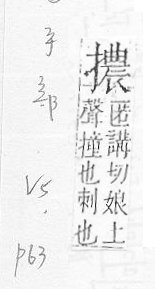 擃
匿講切娘上
聲撞也刺也
手部 V5.
p63